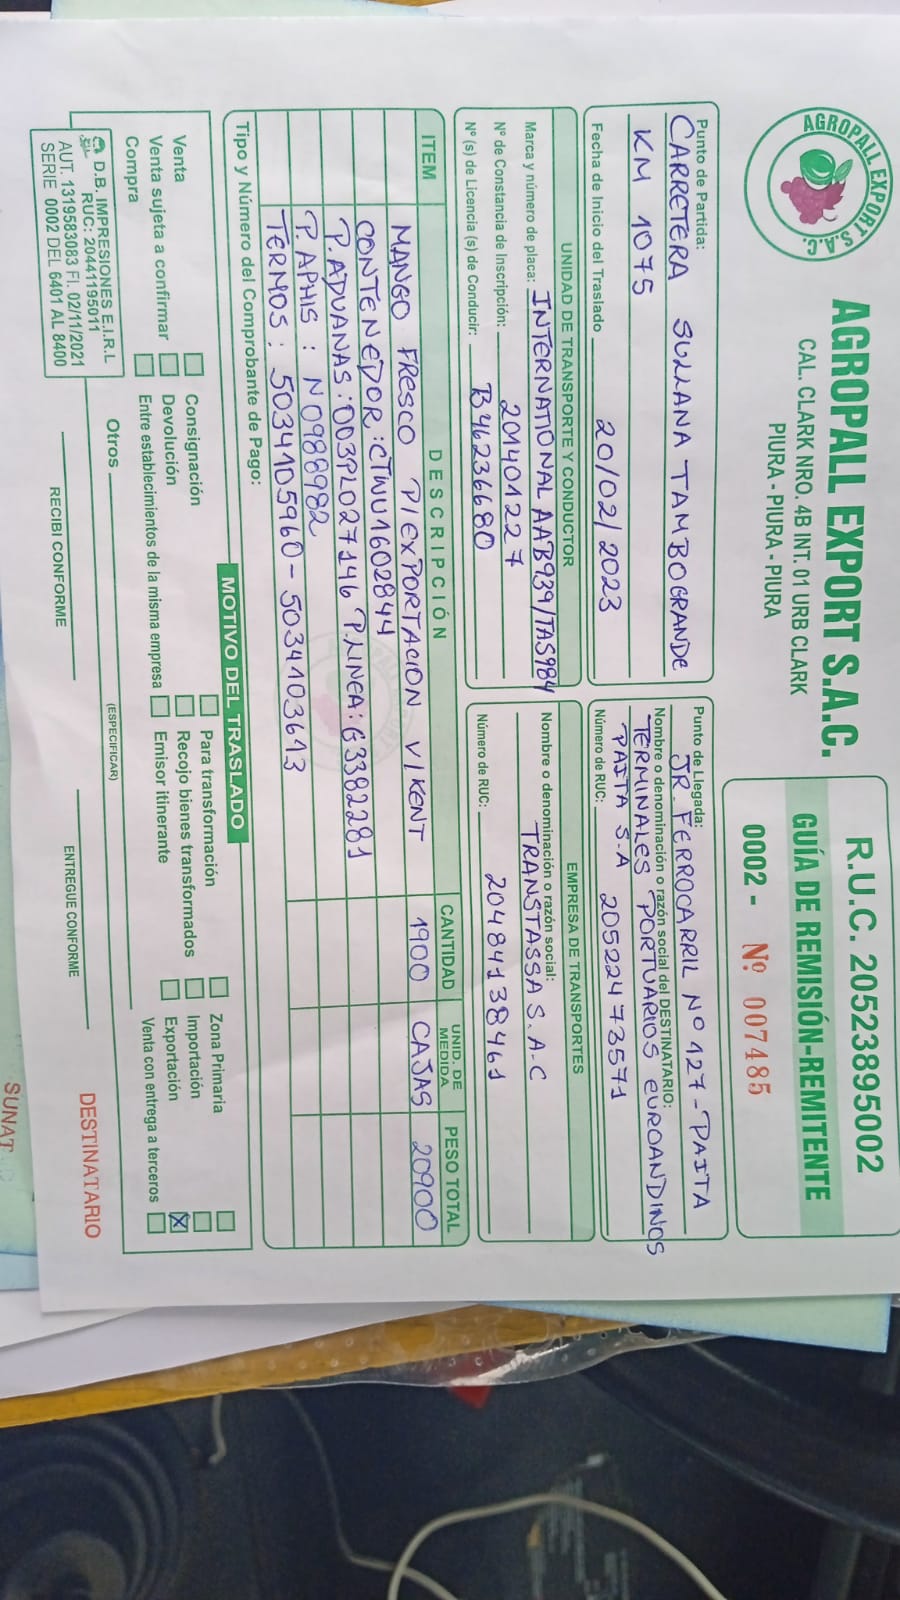 AGROPALL EXPORT S.A.C.
AGROPALL EXPORT S.A.C.
CAL. CLARK NRO. 4B INT. 01 URB CLARK
PIURA - PIURA - PIURA
R.U.C. 20523895002
GUÍA DE REMISIÓN-REMITENTE
0002 - Nº 007485
Punto de Partida:
CARRETERA SULLANA TAMBOGRANDE
KM 1075
Fecha de Inicio del Traslado 20/02/2023
Punto de Llegada:
JR. FERROCARRIL Nº 127 - PAITA
Nombre o denominación o razón social del DESTINATARIO:
TERMINALES PORTUARIOS EUROANDINOS
PAITA S.A 20522473571
Número de RUC:
UNIDAD DE TRANSPORTE Y CONDUCTOR
Marca y número de placa: INTERNATIONAL AAB939/TAS984
Nº de Constancia de Inscripción: 201401227
Nº (s) de Licencia (s) de Conducir: B46236680
EMPRESA DE TRANSPORTES
Nombre o denominación o razón social:
TRANSTASSA S.A.C
Número de RUC: 20484138461
ITEM DESCRIPCIÓN CANTIDAD UNID. DE MEDIDA PESO TOTAL
MANGO FRESCO P/EXPORTACION V/KENT 1900 CAJAS 20900
CONTENEDOR: CTWU1602844
P. ADUANAS: 003PL027146 P. LINEA: G3382281
P. APHIS: N0988982
TERMOS: 5034105960 - 5034103613
Tipo y Número del Comprobante de Pago:
MOTIVO DEL TRASLADO
Venta
Venta sujeta a confirmar
Compra
Consignación
Devolución
Entre establecimientos de la misma empresa
Para transformación
Recojo bienes transformados
Emisor itinerante
Zona Primaria
Importación
Exportación
Venta con entrega a terceros
X
Otros
(ESPECIFICAR)
D.B. IMPRESIONES E.I.R.L
RUC: 20441195011
AUT. 1319583083 FI. 02/11/2021
SERIE 0002 DEL 6401 AL 8400
RECIBI CONFORME
ENTREGUE CONFORME
DESTINATARIO
SUNAT